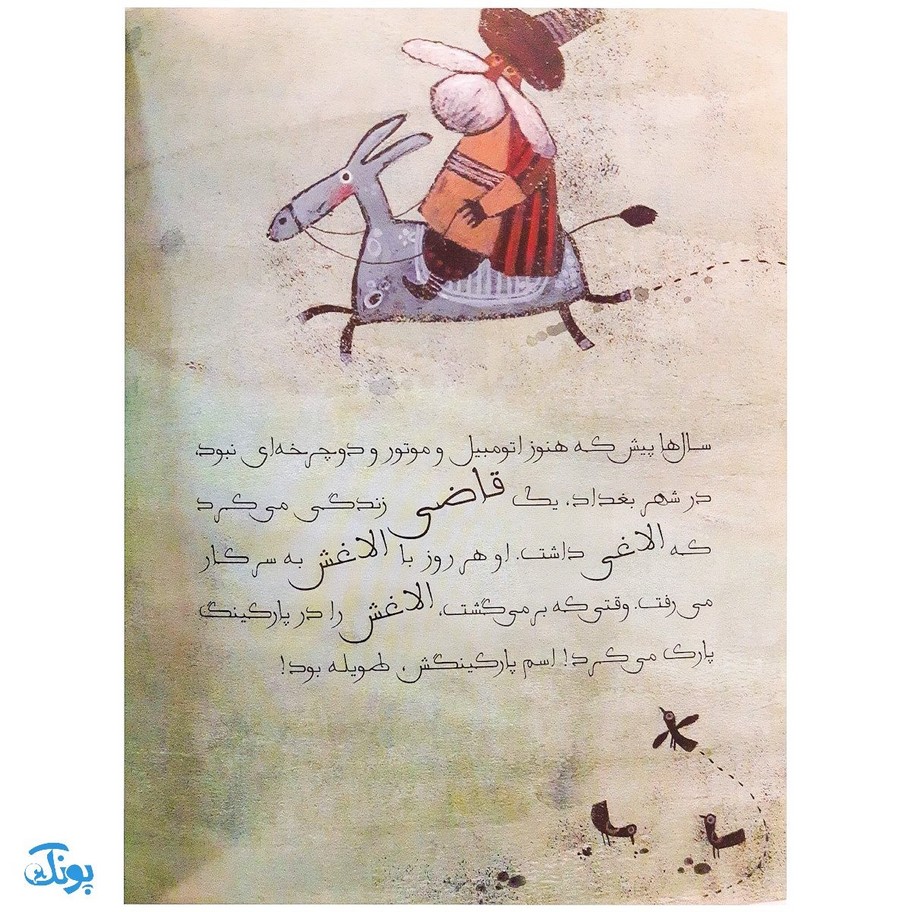 سال‌ها پیش که هنوز اتومبیل و موتور و دوچرخه‌ای نبود،
در شهر بغداد، یک قاضی زندگی می‌کرد
که الاغی داشت. او هر روز با الاغش به سر کار
می‌رفت. وقتی‌که بر می‌گشت، الاغش را در پارکینگ
پارک می‌کرد! اسم پارکینگش، طویله بود!
پونک